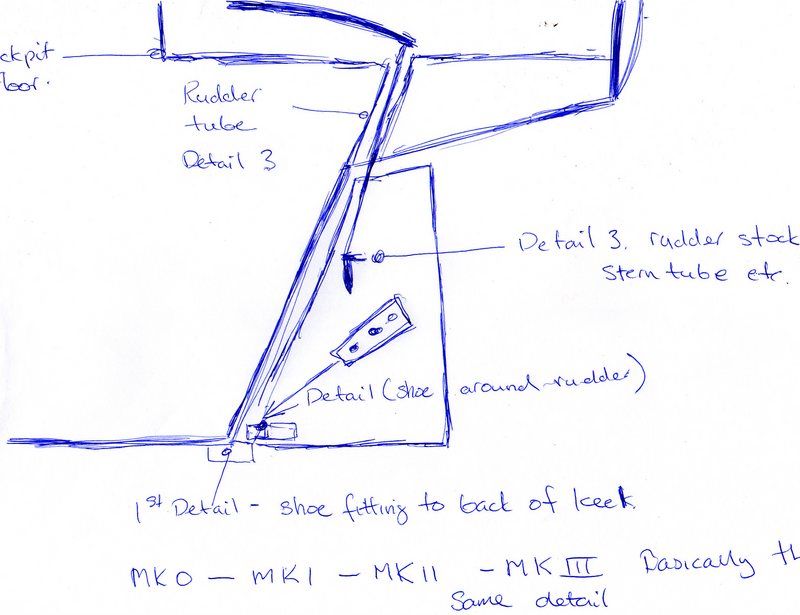 ckpit
loor.
Rudder
tube
Detail 3
Detail 3. rudder stock
stern tube etc.
Detail (shoe around rudder)
1st Detail - shoe fitting to back of keek
MK0 - MK1 - MKII - MKIII Basically th
Same detail